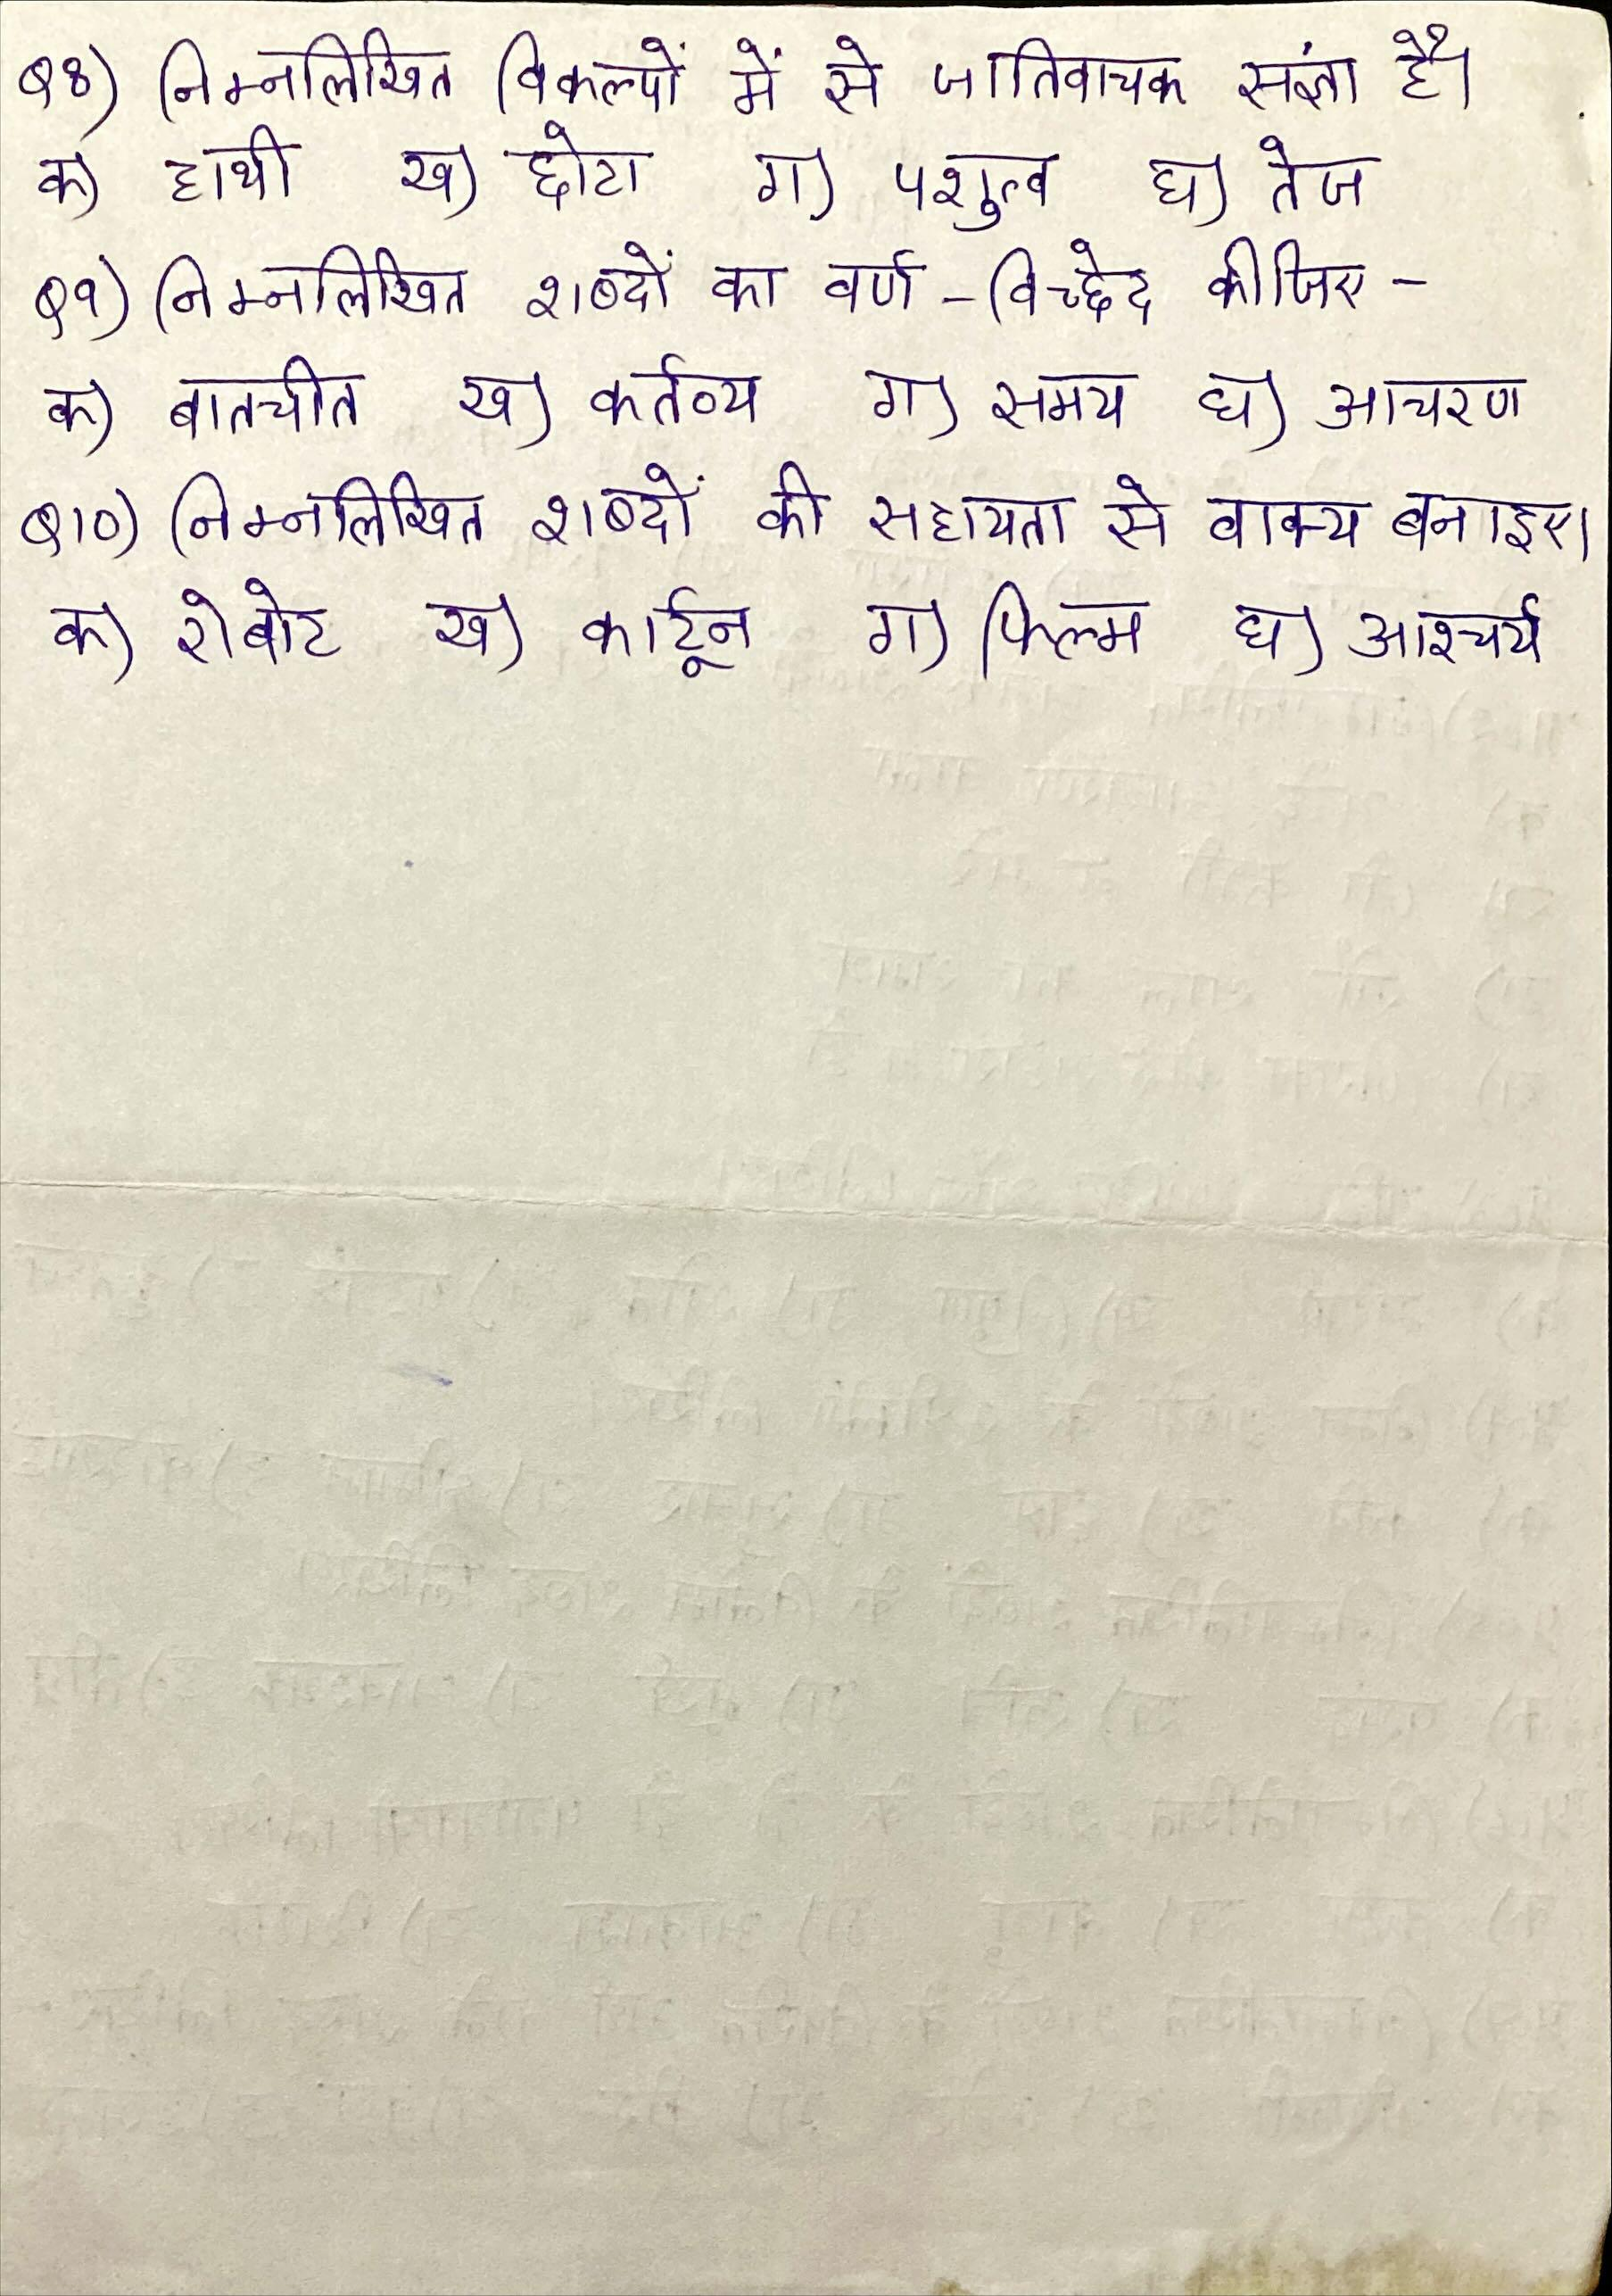 Q8) निम्नलिखित विकल्पों में से जातिवाचक संज्ञा है।
क) हाथी ख) छोटा ग) पशुत्व घ) तेज
Q9) निम्नलिखित शब्दों का वर्ण - विच्छेद कीजिए -
क) बातचीत ख) कर्तव्य ग) समय घ) आचरण
Q10) निम्नलिखित शब्दों की सहायता से वाक्य बनाइए।
क) रोबोट ख) कार्टून ग) फिल्म घ) आश्चर्य